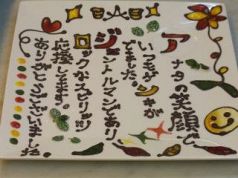 アナタの笑顔で
いつもゲンキが
でました。
ジェントルマンであり
ロックなスピリッツ
してます。
ありがとうございました